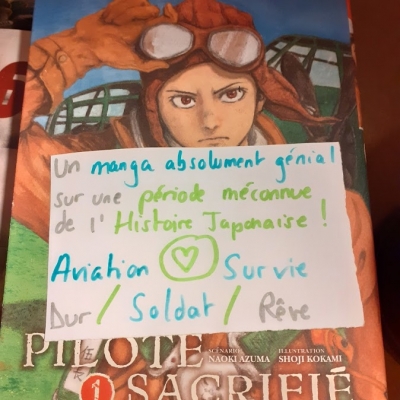 Un manga absolument génial
sur une période méconnue
de l'Histoire Japonaise !
Aviation Survie
Dur / Soldat / Rêve
PILOTE
SCÉNARIO
NAOKI AZUMA
ILLUSTRATION
SHOJI KOKAMI
1
SACRIFIÉ